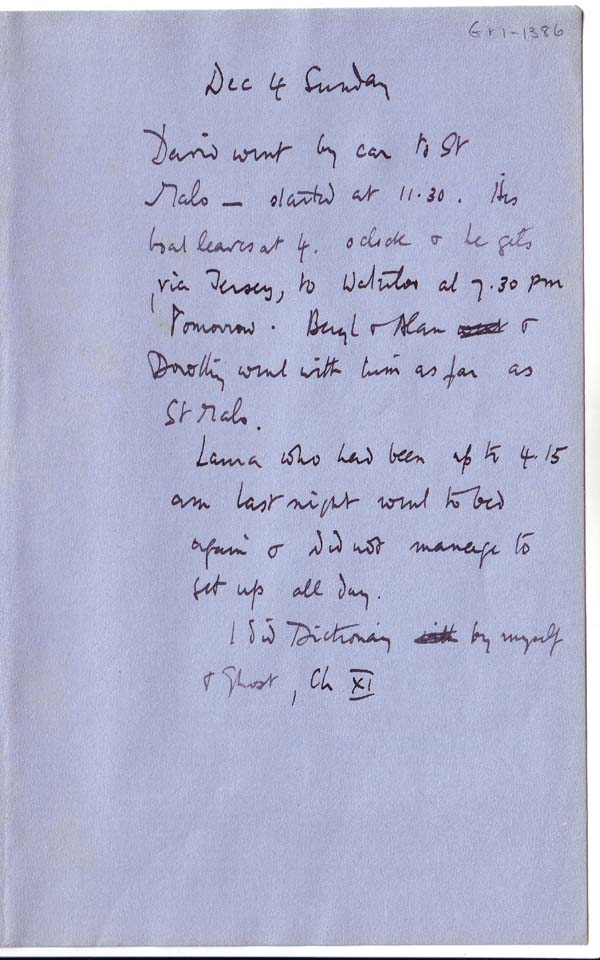 Gr1-1386
Dec 4 Sunday
David went by car to St
Malo – started at 11.30. His
boat leaves at 4. o clock & he gets
via Jersey, to Waterloo at 7.30 pm
Tomorrow. Beryl & Alan went &
Dorothy went with him as far as
St Malo.
Laura who had been up to 4.15
am last night went to bed
again & did not manage to
get up all day.
I did Dictionary with by myself
& Ghost, Ch XI